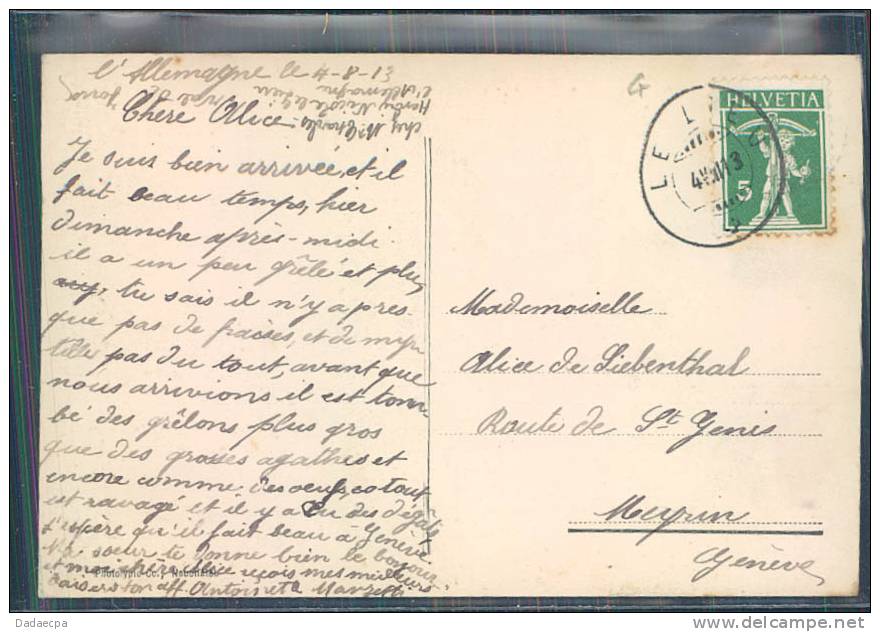 l'Allemagne le 4-8-13
chez Mr Charles
l'Allemagne
Chère Alice.
Je suis bien arrivée, et il
fait beau temps, hier
dimanche après-midi
il a un peu grêlé et plu,
tu sais il n'y a pres
que pas de fraises, et de myr
tille pas du tout, avant que
nous arrivions il est tom
bé des grêlons plus gros
que des grosses agathes et
encore comme des oeufs, tout
est ravagé et il y a eu des dégâts
j'espère qu'il fait beau à Genève
Ma soeur te donne bien le bonjour
et moi chère Alice reçois mes meilleurs
baisers ton aff. Antoinette
Phototypie Co., Neuchâtel
HELVETIA
5
LE LIEU
4 VIII 13
Mademoiselle
Alice de Siebenthal
Route de St Genis
Meyrin
Genève
Dadaecpa
www.delcampe.net